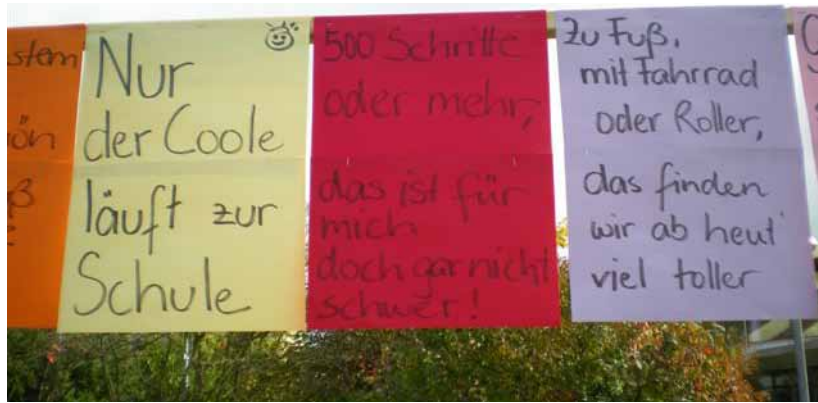 Nur
der Coole
läuft zur
Schule
500 Schritte
oder mehr,
das ist für
mich
doch gar nicht
schwer!
Zu Fuß,
mit Fahrrad
oder Roller,
das finden
wir ab heut'
viel toller